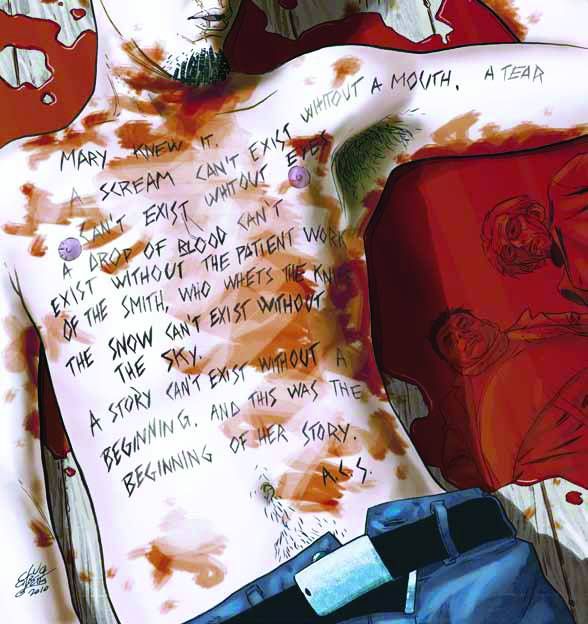 MARY KNEW IT.
A SCREAM CAN'T EXIST WHITOUT A MOUTH. A TEAR
CAN'T EXIST WHTOUT EYES
A DROP OF BLOOD CAN'T
EXIST WITHOUT THE PATIENT WORK
OF THE SMITH, WHO WHETS THE KNIFE
THE SNOW CAN'T EXIST WITHOUT
THE SKY.
A STORY CAN'T EXIST WITHOUT A
BEGINNING. AND THIS WAS THE
BEGINNING OF HER STORY.
A.C.S.
2010